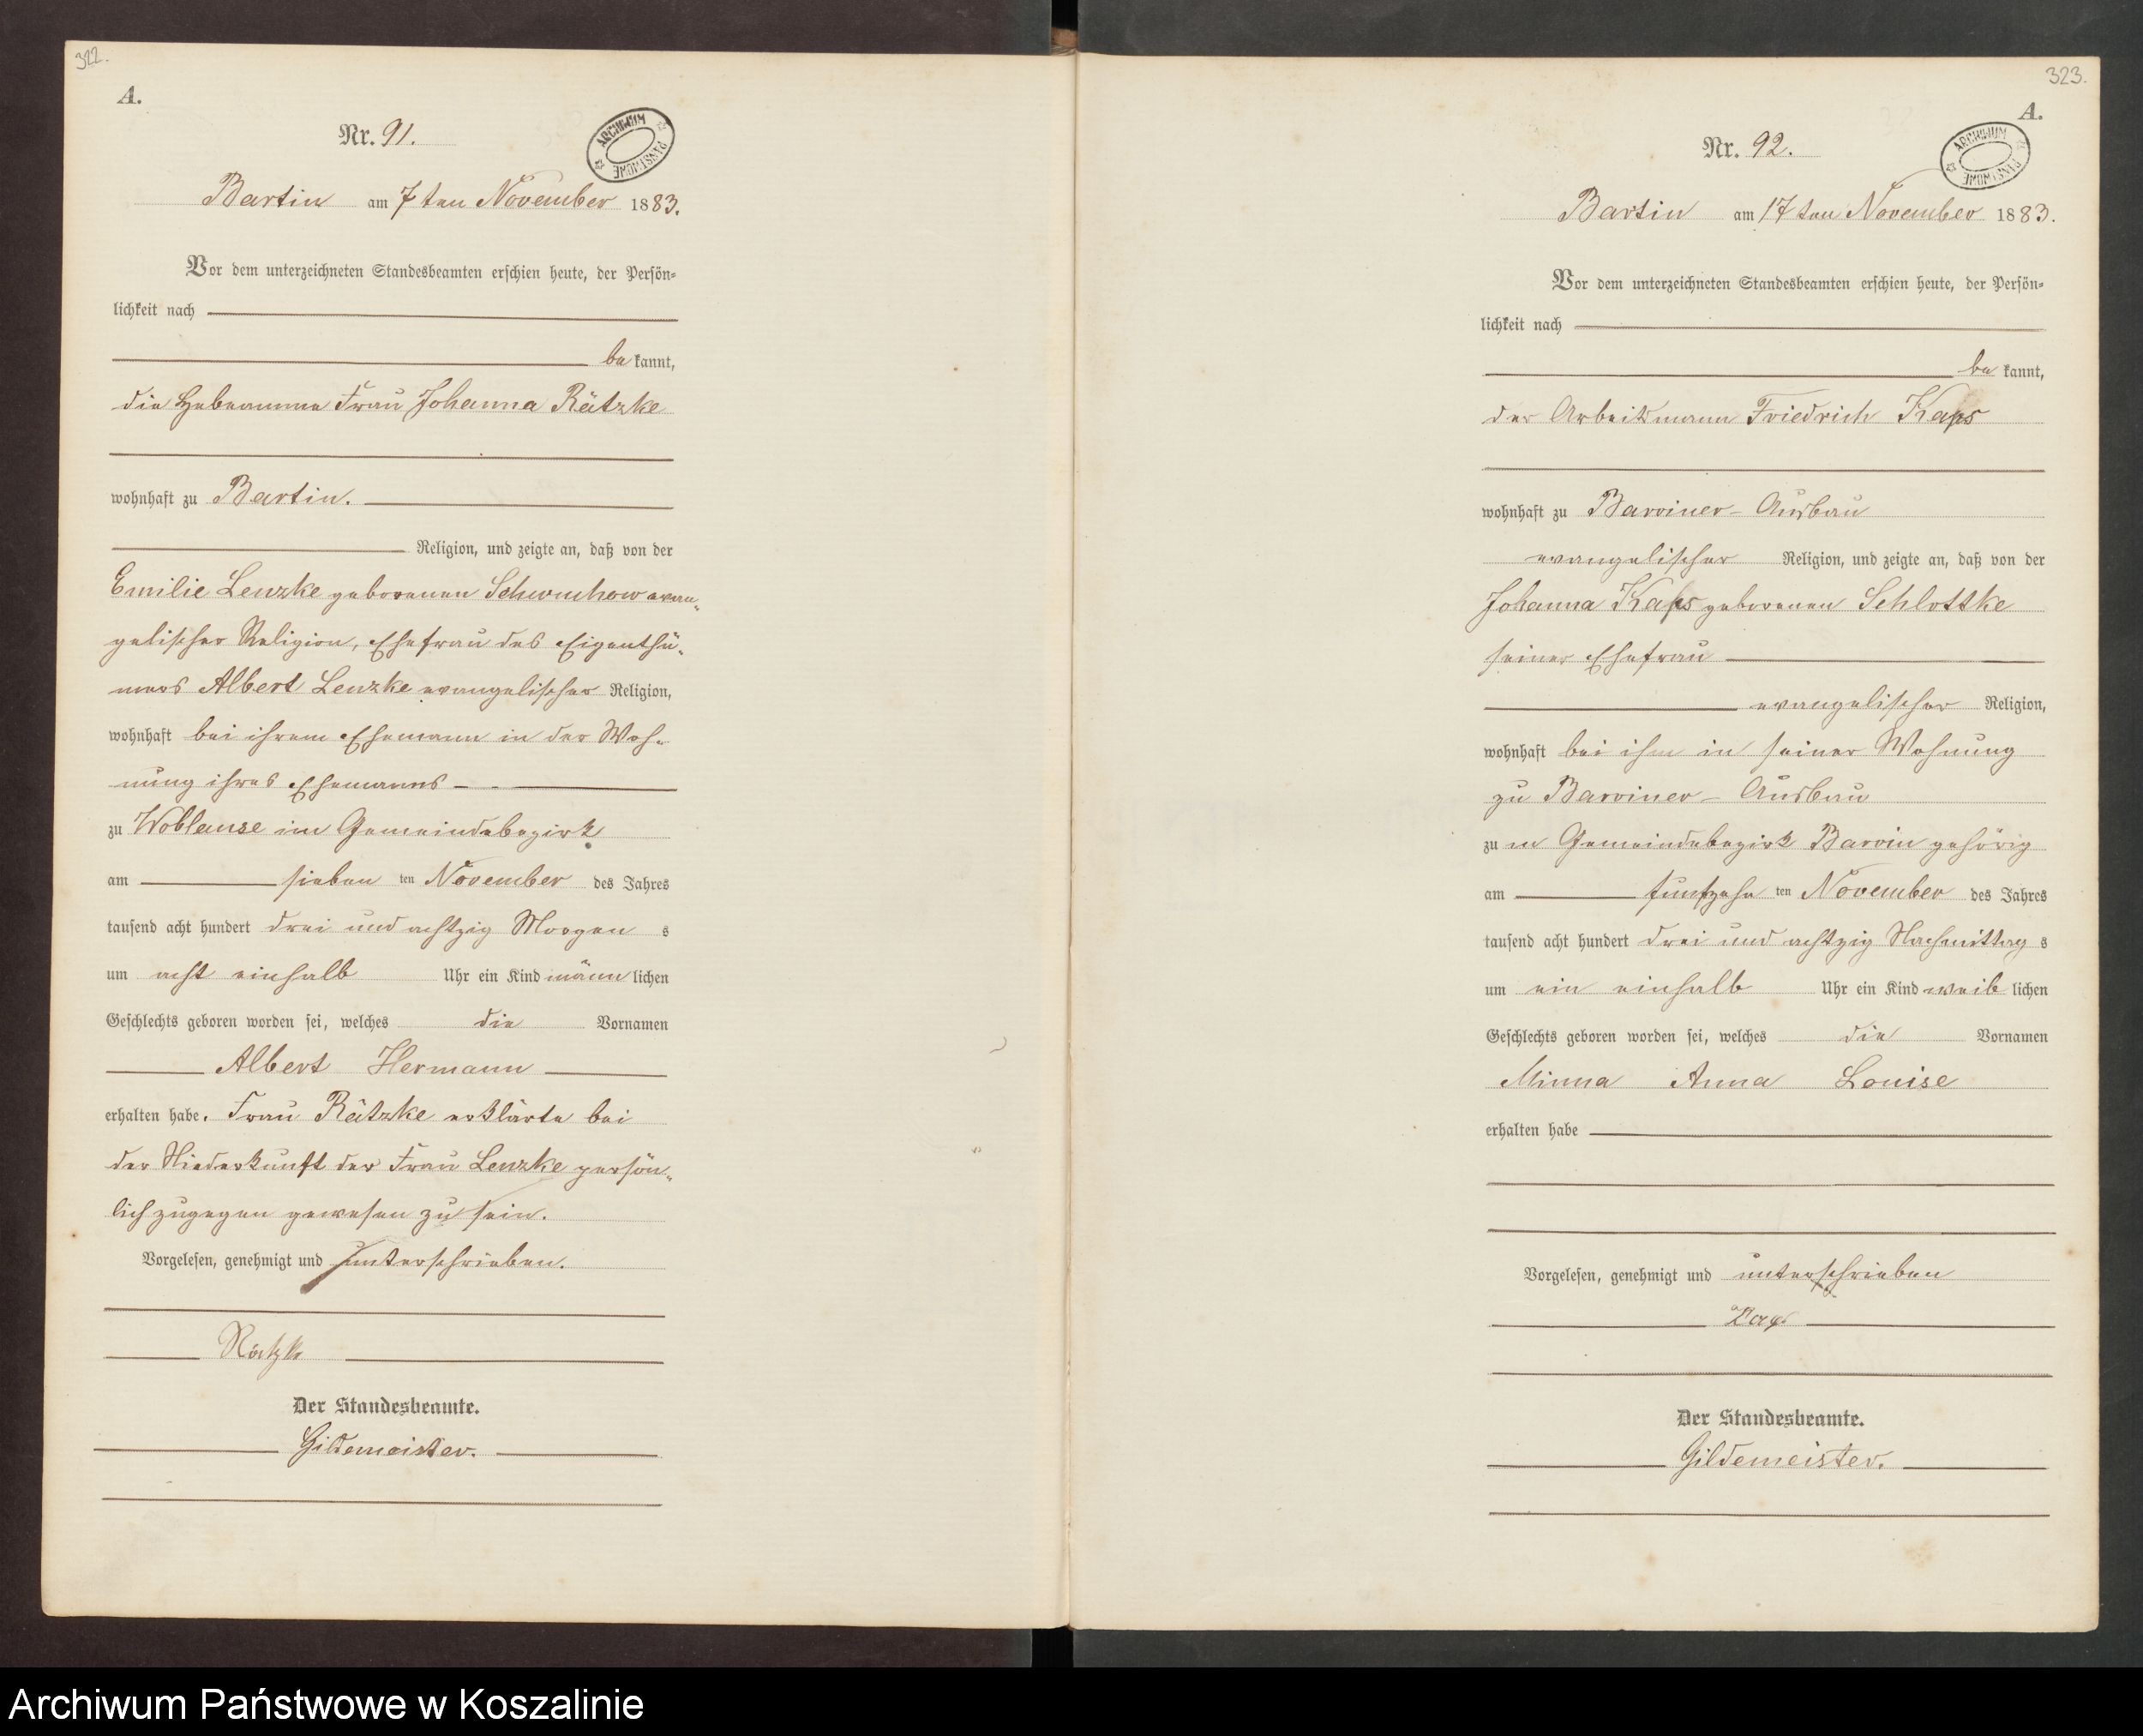 322.
A.
Nr. 91.
ARCHIWUM PAŃSTWOWE
Bartin am 7ten November 1883.
Vor dem unterzeichneten Standesbeamten erschien heute, der Persön=
lichkeit nach
be kannt,
die Hebeamme Frau Johanna Rätzke
wohnhaft zu Bartin.
Religion, und zeigte an, daß von der
Emilie Lenzke geborenen Schwuchow evan„
gelischer Religion, Ehefrau des Eigenthü„
mers Albert Lenzke evangelischer Religion,
wohnhaft bei ihrem Ehemann in der Woh„
nung ihres Ehemanns
zu Woblanse im Gemeindebezirk
am sieben ten November des Jahres
tausend acht hundert drei und achtzig Morgen s
um acht einhalb Uhr ein Kind männ lichen
Geschlechts geboren worden sei, welches die Vornamen
Albert Hermann
erhalten habe. Frau Rätzke erklärte bei
der Niederkunft der Frau Lenzke persön„
lich zugegen gewesen zu sein.
Vorgelesen, genehmigt und unterschrieben.
Rätzke
Der Standesbeamte.
Gildemeister.
323.
A.
Nr. 92.
ARCHIWUM PAŃSTWOWE
Bartin am 17ten November 1883.
Vor dem unterzeichneten Standesbeamten erschien heute, der Persön=
lichkeit nach
be kannt,
der Arbeitsmann Friedrich Kaps
wohnhaft zu Barviner-Ausbau
evangelischer Religion, und zeigte an, daß von der
Johanna Kaps geborenen Schlottke
seiner Ehefrau
evangelischer Religion,
wohnhaft bei ihm in seiner Wohnung
zu Barviner-Ausbau
zu m Gemeindebezirk Barvin gehörig
am funfzehn ten November des Jahres
tausend acht hundert drei und achtzig Nachmittag s
um ein einhalb Uhr ein Kind weib lichen
Geschlechts geboren worden sei, welches die Vornamen
Minna Anna Louise
erhalten habe
Vorgelesen, genehmigt und unterschrieben
Der Standesbeamte.
Gildemeister.
Archiwum Państwowe w Koszalinie